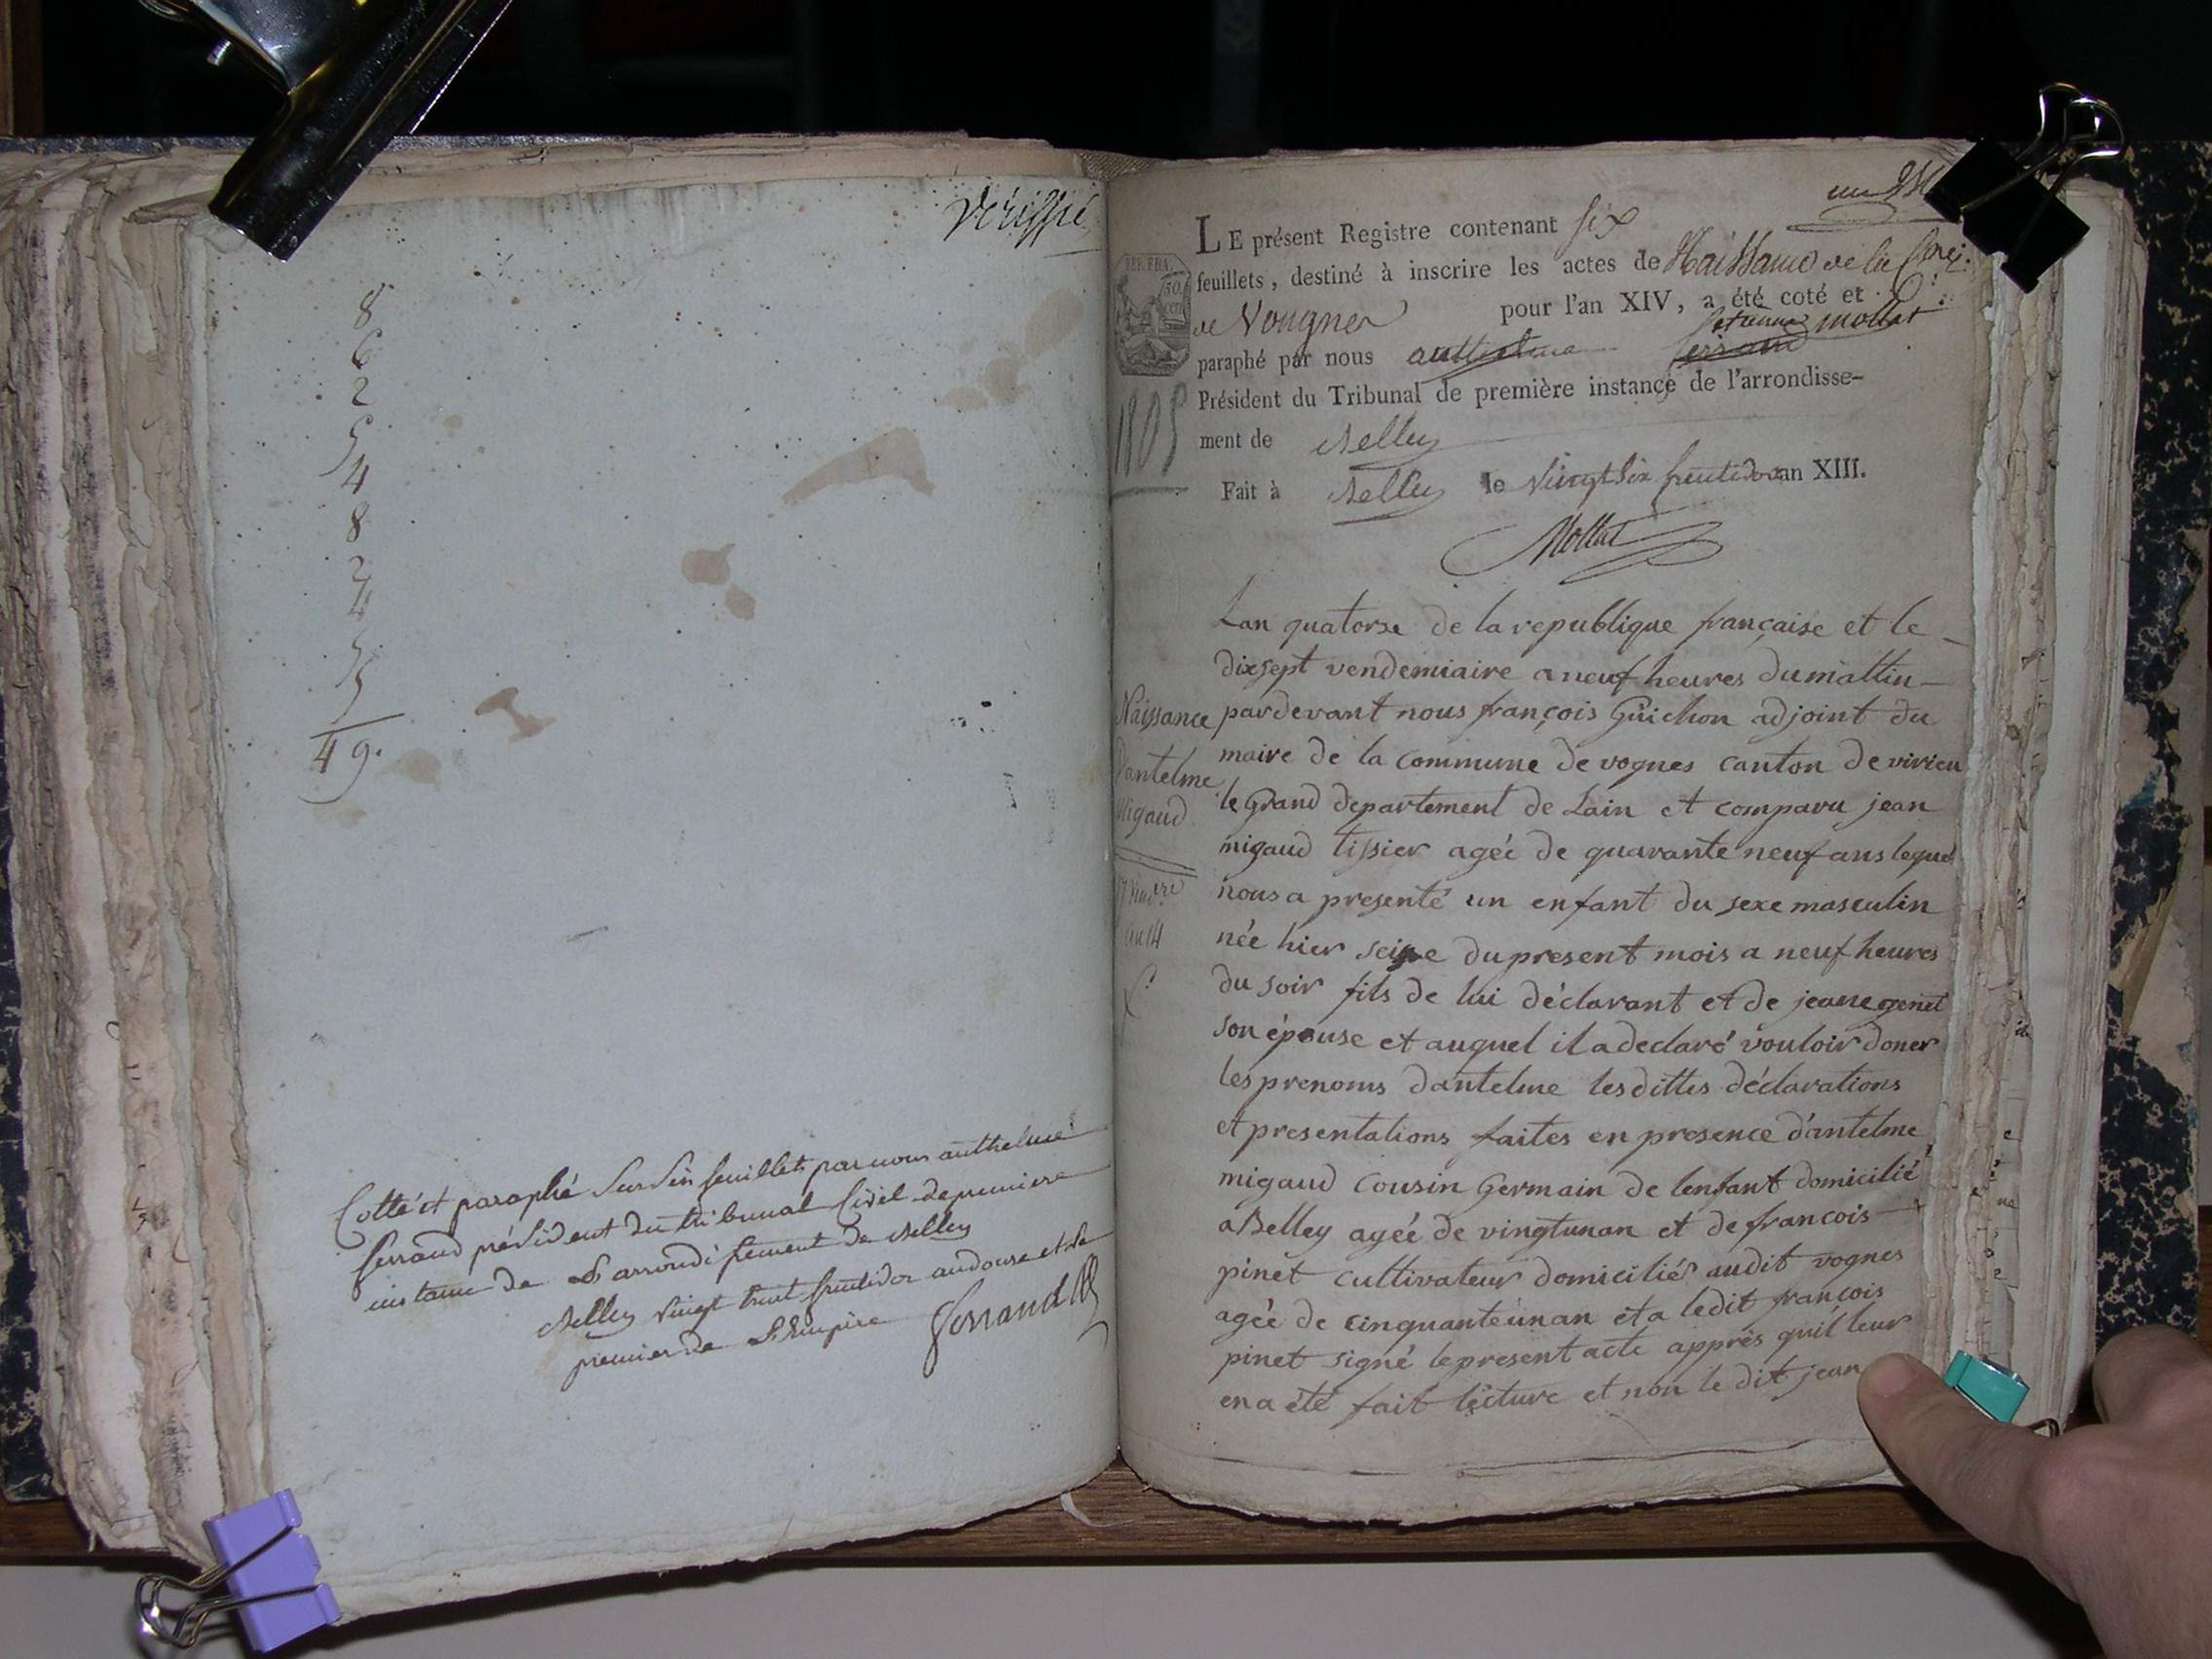 vériffié
8
6
2
5
4
8
2
4
5
5
49.
Cotté et paraphé sur six feuillets par nous anthelme
ferrand président du tribunal Civil de premiere
instance de L'arrondissement de Belley
Belley vingt huit fructidor an douze et le
premier de L'Empire ferrand
un
LE présent Registre contenant six
feuillets, destiné à inscrire les actes de Naissance de la
de Vougnes pour l'an XIV, a été coté et
mollat
paraphé par nous anthelme ferrand
Président du Tribunal de première instance de l'arrondisse-
ment de Belley
Fait à Belley le vingt six fructidor an XIII.
Mollat
REP. FRA.
50
1805
Lan quatorze de la republique française et le
dixsept vendemiaire a neuf heures du mattin
pardevant nous françois Guichon adjoint du
maire de la commune de vognes canton de virieu
le Grand departement de Lain et comparu jean
migaud tissier agée de quarante neuf ans lequel
nous a presenté un enfant du sexe masculin
née hier seize du present mois a neuf heures
du soir fils de lui déclarant et de jeane genet
son épouse et auquel il a declaré vouloir doner
les prenoms dantelme les dittes déclarations
et presentations faites en presence d'antelme
migaud cousin Germain de lenfant domicilié
a Belley agée de vingtunan et de francois
pinet cultivateur domiciliés audit vognes
agée de cinquanteunan et a ledit françois
pinet signé le present acte apprés quil leur
en a été fait lécture et non le dit jean
Naissance
Dantelme
Migaud
17 vend.re
an 14